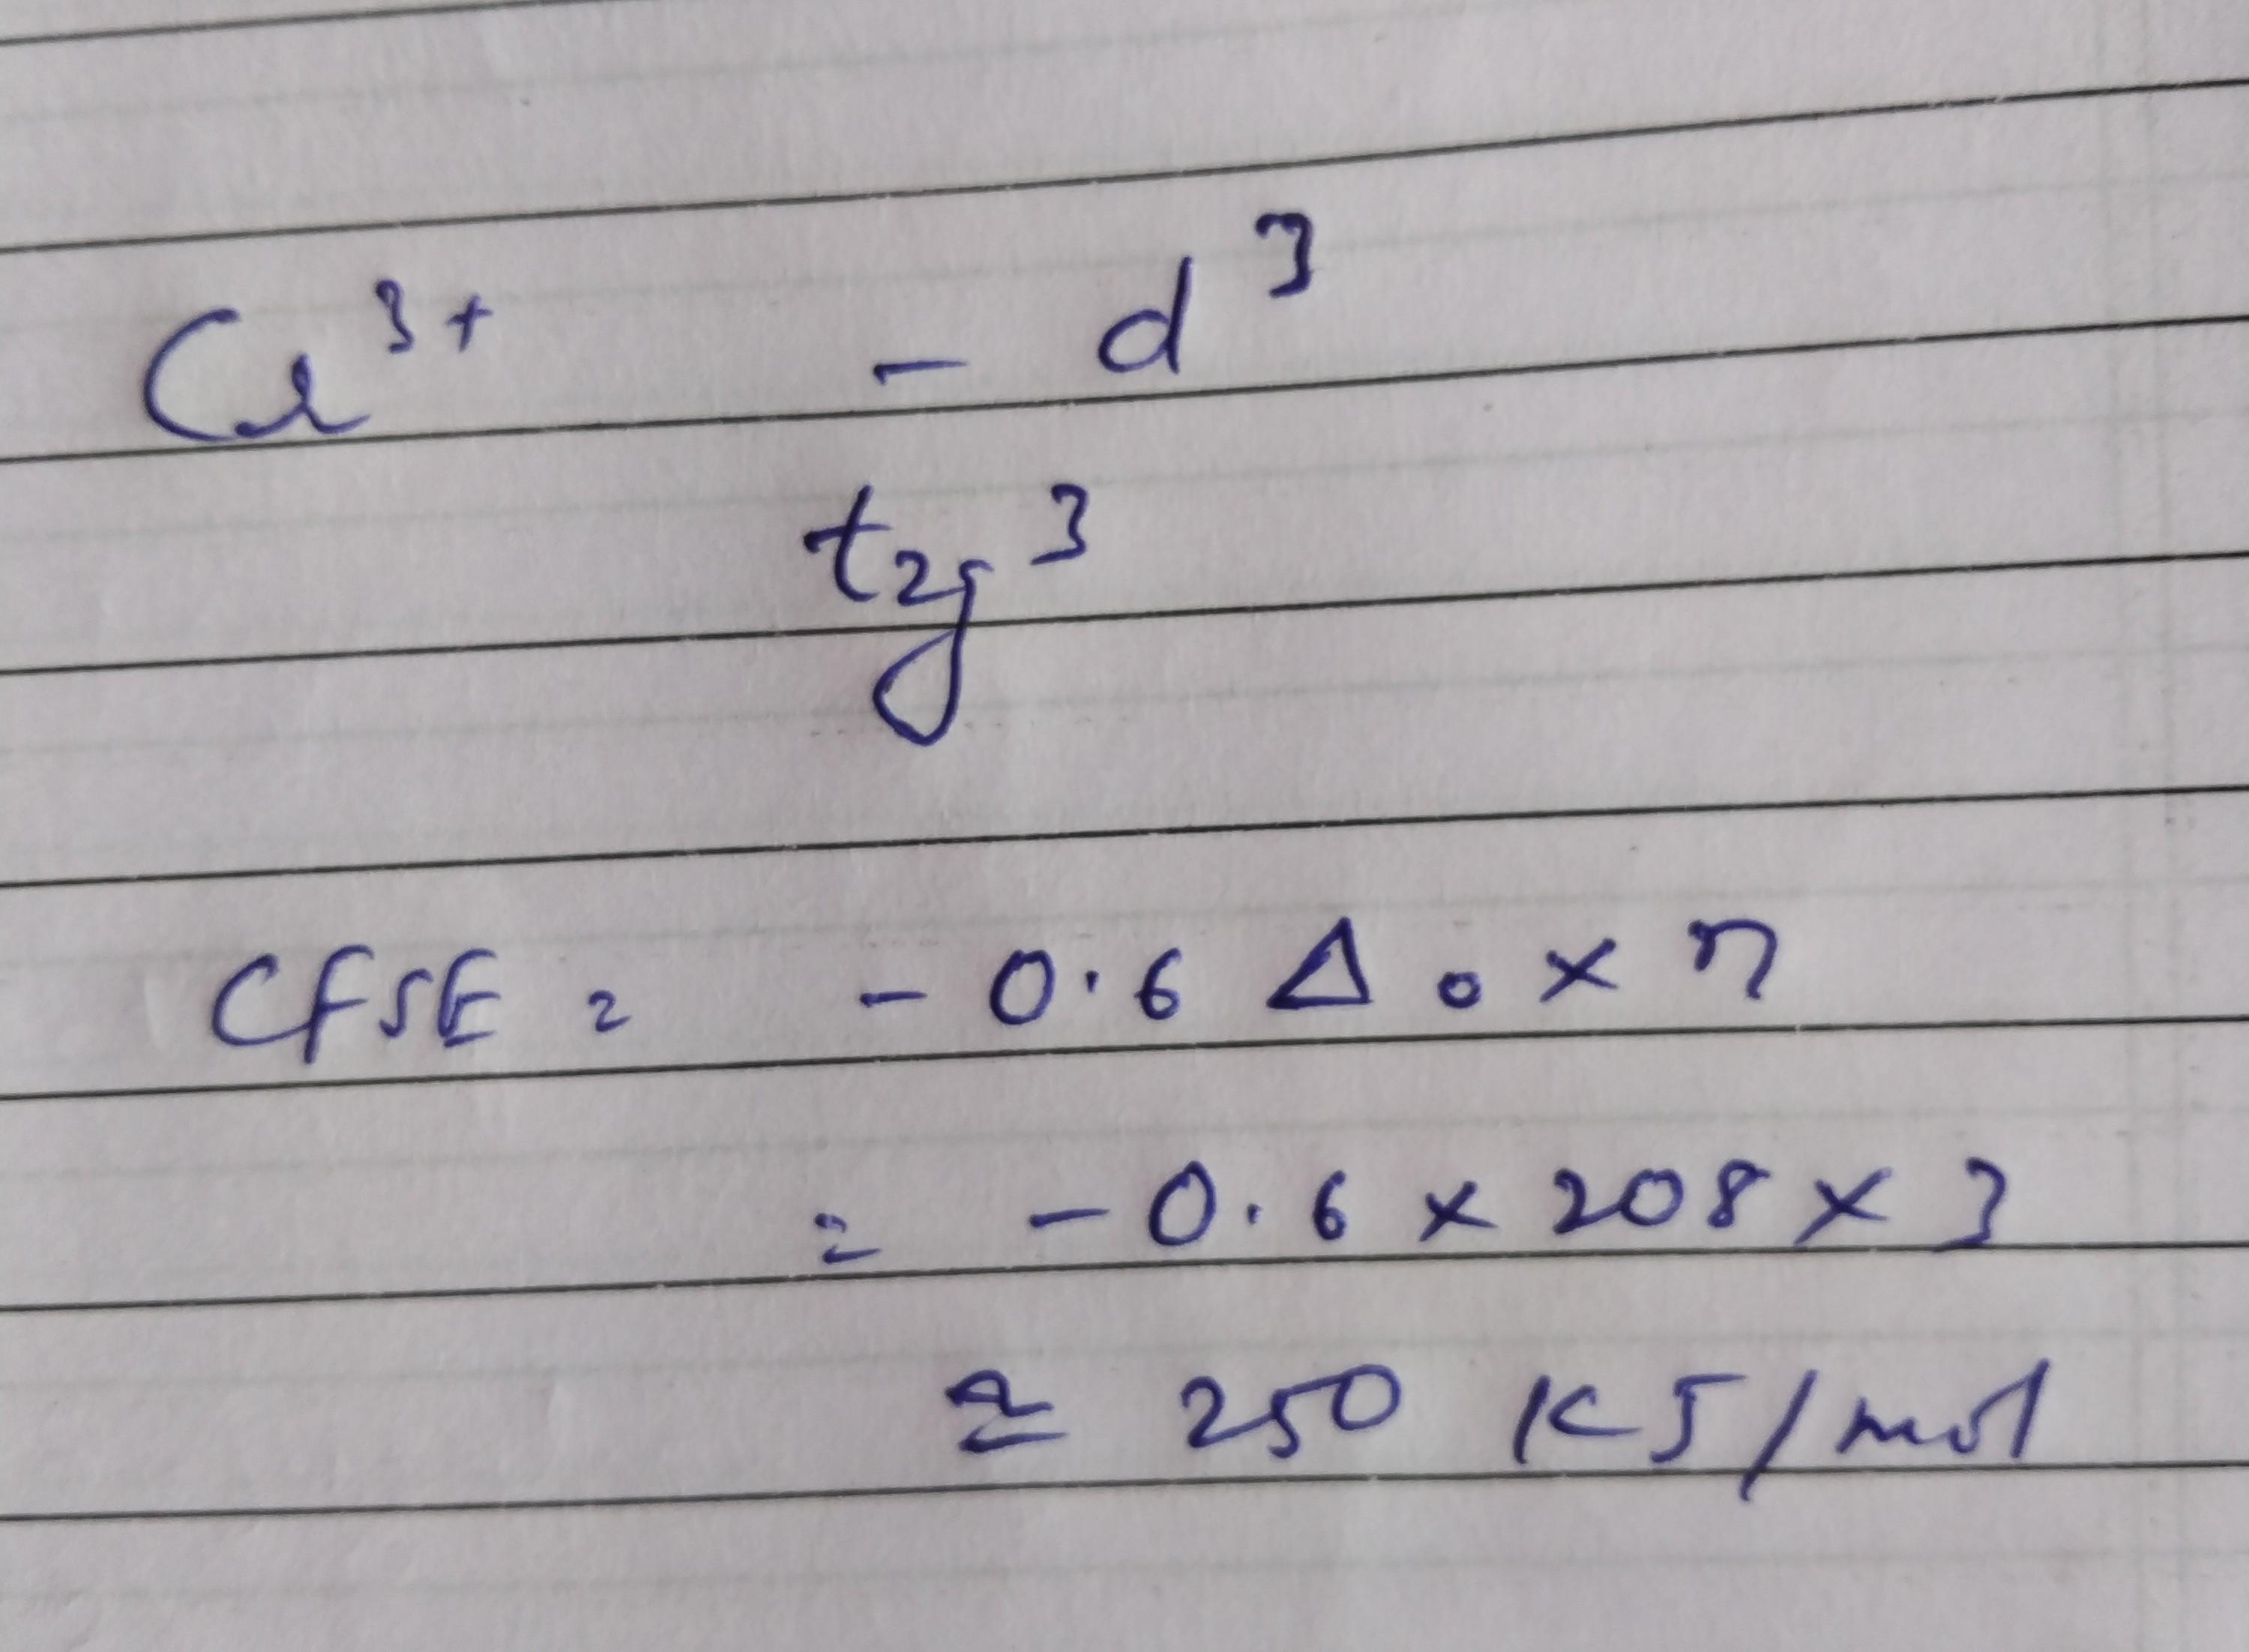 Cr³⁺ - d³
t₂g³
CFSE = - 0.6 Δ₀ × n
= - 0.6 × 208 × 3
≈ 250 KJ/mol